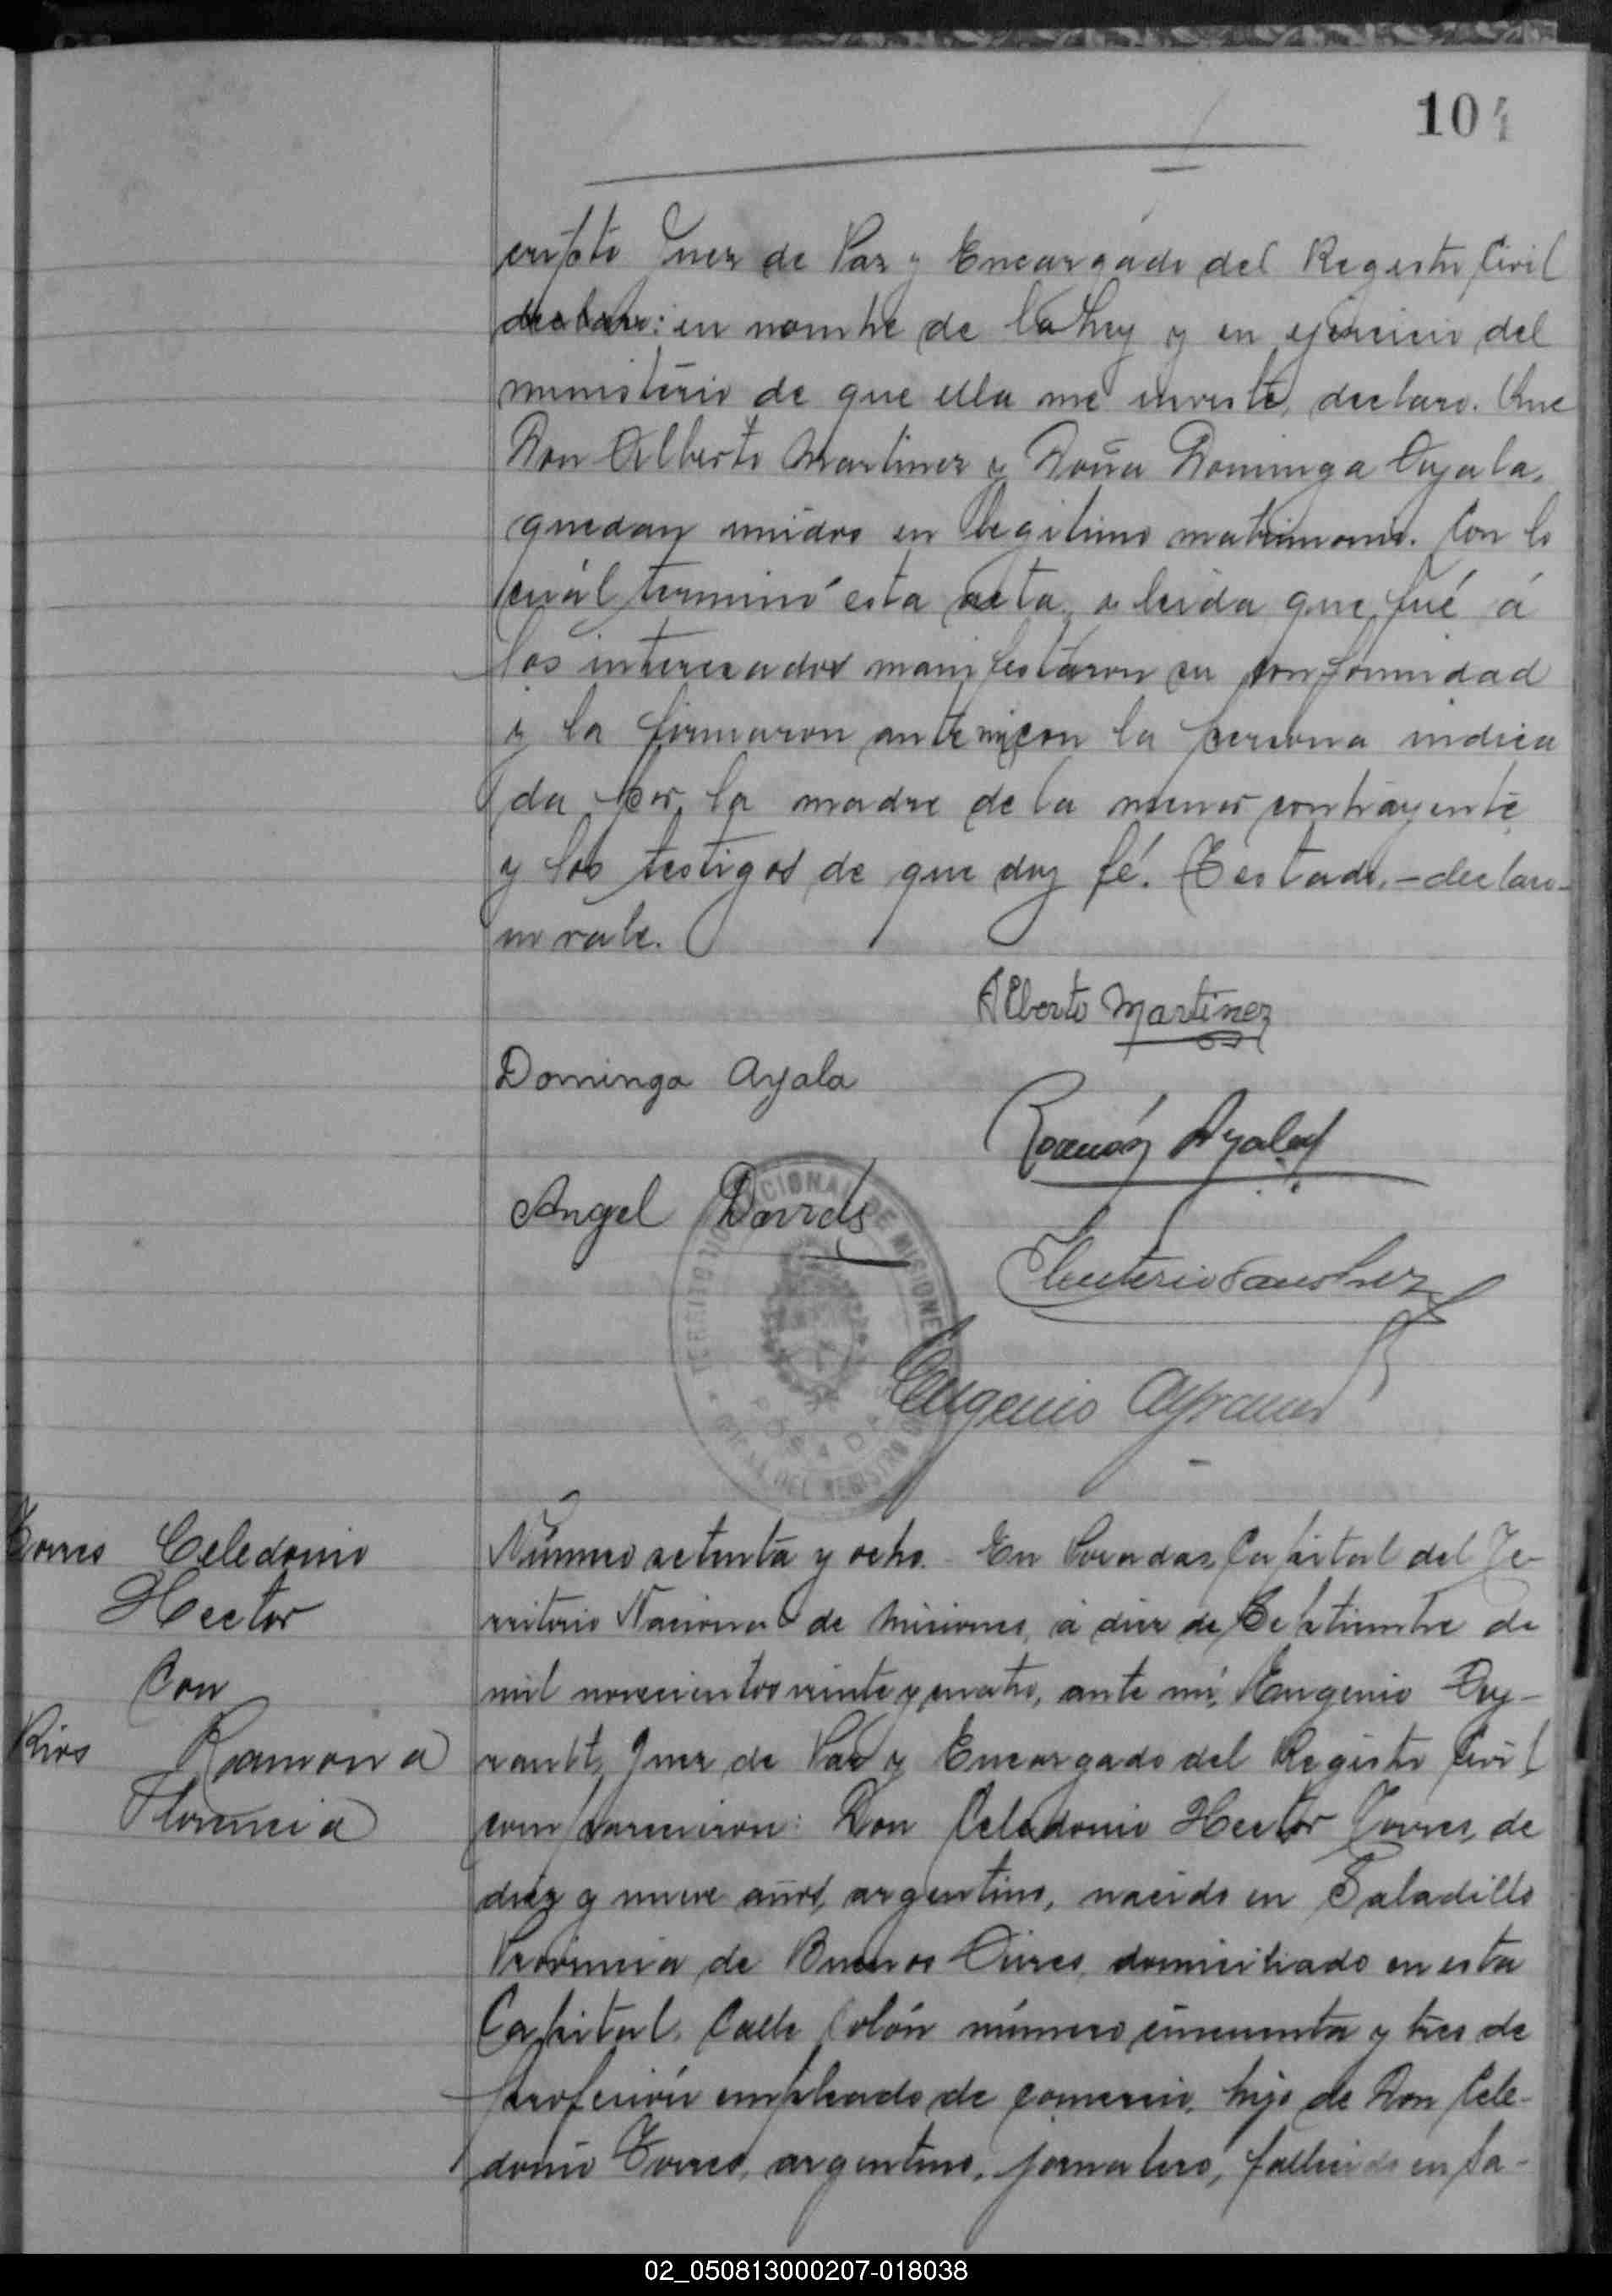 104
cripto Juez de Paz y Encargado del Registro Civil
declaro: en nombre de la Ley y en ejercicio del
ministerio de que ella me inviste, declaro. Que
Don Alberto Martinez y Doña Dominga Ayala,
quedan unidos en legitimo matrimonio. Con lo
cuál terminó esta acta, y leida que fué á
los interesados manifestaron su conformidad
y la firmaron ante mi, con la persona indica
da por la madre de la menor contrayente
y los testigos de que doy fé. Testado.-declaro-
no vale.
Alberto Martínez
Dominga Ayala
Ramón Ayala
Angel Barrios
Eleuterio Sanchez
Eugenio
TERRITORIO NACIONAL DE MISIONES
POSADAS
DEL REGISTRO
Torres Celedonio
Hector
Con
Rios Ramona
Florencia
Número setenta y ocho. En Posadas, Capital del Te-
rritorio Nacional de Misiones, á diez de Septiembre de
mil novecientos veinte y cuatro, ante mí, Eugenio Ay-
rault, Juez de Paz y Encargado del Registro Civil
comparecieron: Don Celedonio Hector Torres, de
diez y nueve años, argentino, nacido en Saladillo
Provincia de Buenos Aires, domiciliado en esta
Capital, Calle Colón número cincuenta y tres de
profesión empleado de comercio, hijo de Don Cele-
donio Torres, argentino, jornalero, fallecido en Sa-
02_050813000207-018038